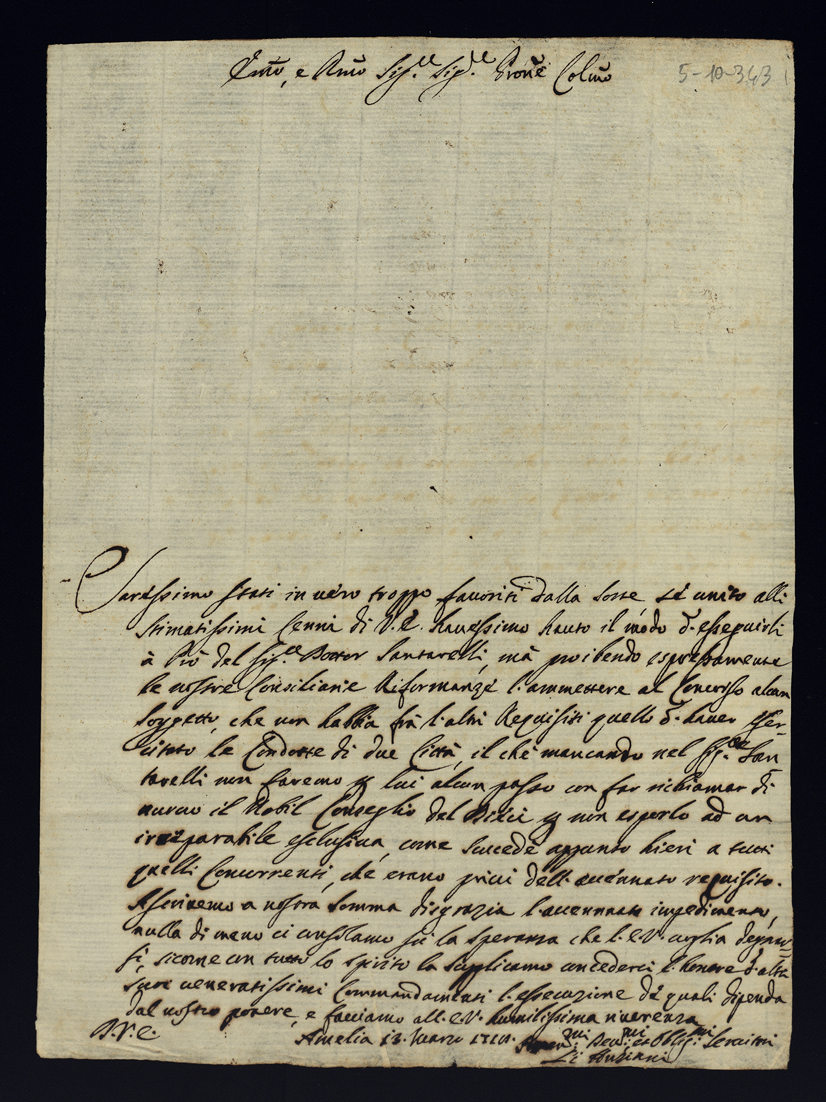 Emo, e Rmo Sig.re Sig.re Prone Colmo
5-10-343
Saressimo stati in vero troppo favoriti dalla sorte se unito alli
stimatissimi Cenni di V.E. havessimo hauto il modo d'esseguirli
à Prò del Sig.re Dottor Santarelli, mà proibendo espressamente
le nostre Consiliarie Riformanze l'ammettere al Concorso alcun
soggetto, che non habbia frà l'altri Requisiti quello d'haver Eser-
citato le Condotte di due Città, il che mancando nel Sig.re San
tarelli non faremo p lui alcun passo con far richiamar di
nuovo il Nobil Conseglio del Dieci p non esporlo ad un
irreparabile esclusiva, come succede appunto hieri a tutti
quelli Concorrenti, che erano privi dell'accennato requisito.
Ascrivemo a nostra somma disgrazia l'accennato impedimento,
nulla di meno ci consolamo sù la speranza che l'E.V. voglia degnar-
si, sicome con tutto lo spirito la suplicamo concederci l'honore d'altri
suoi veneratissimi Commandamenti l'essecuzione de quali dipenda
dal nostro potere, e facciamo all'E.V. humilissima riverenza
D.V.E.
Amelia 13. Marzo
Dev.mi et Obblig.mi Servitori
Li Anziani